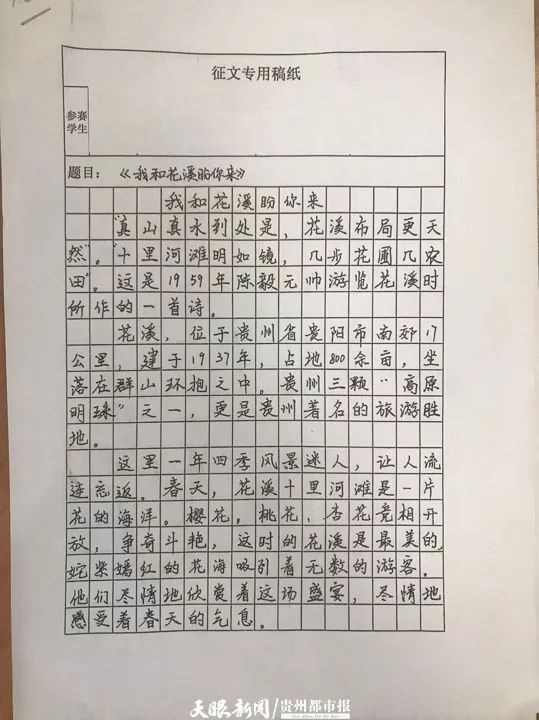 征文专用稿纸
参赛
学生
题目：《我和花溪盼你来》
我和花溪盼你来
“真山真水到处是，花溪布局更天
然”。“十里河滩明如镜，几步花圃几农
田”。这是1959年陈毅元帅游览花溪时
所作的一首诗。
花溪，位于贵州省贵阳市南郊17
公里，建于1937年，占地800余亩，坐
落在群山环抱之中。贵州三颗“高原
明珠”之一，更是贵州著名的旅游胜
地。
这里一年四季风景迷人，让人流
连忘返。春天，花溪十里河滩是一片
花的海洋。樱花，桃花、杏花竞相开
放，争奇斗艳，这时的花溪是最美的，
姹紫嫣红的花海吸引着无数的游客。
他们尽情地欣赏着这场盛宴，尽情地
感受着春天的气息。
天眼新闻/贵州都市报